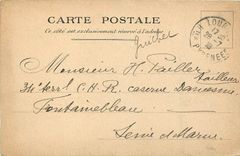 CARTE POSTALE
Ce côté est exclusivement réservé à l'adresse
Monsieur H. Tailler
tailleur
34e terr! C.H.R. caserne Damesme
Fontainebleau
Seine et Marne